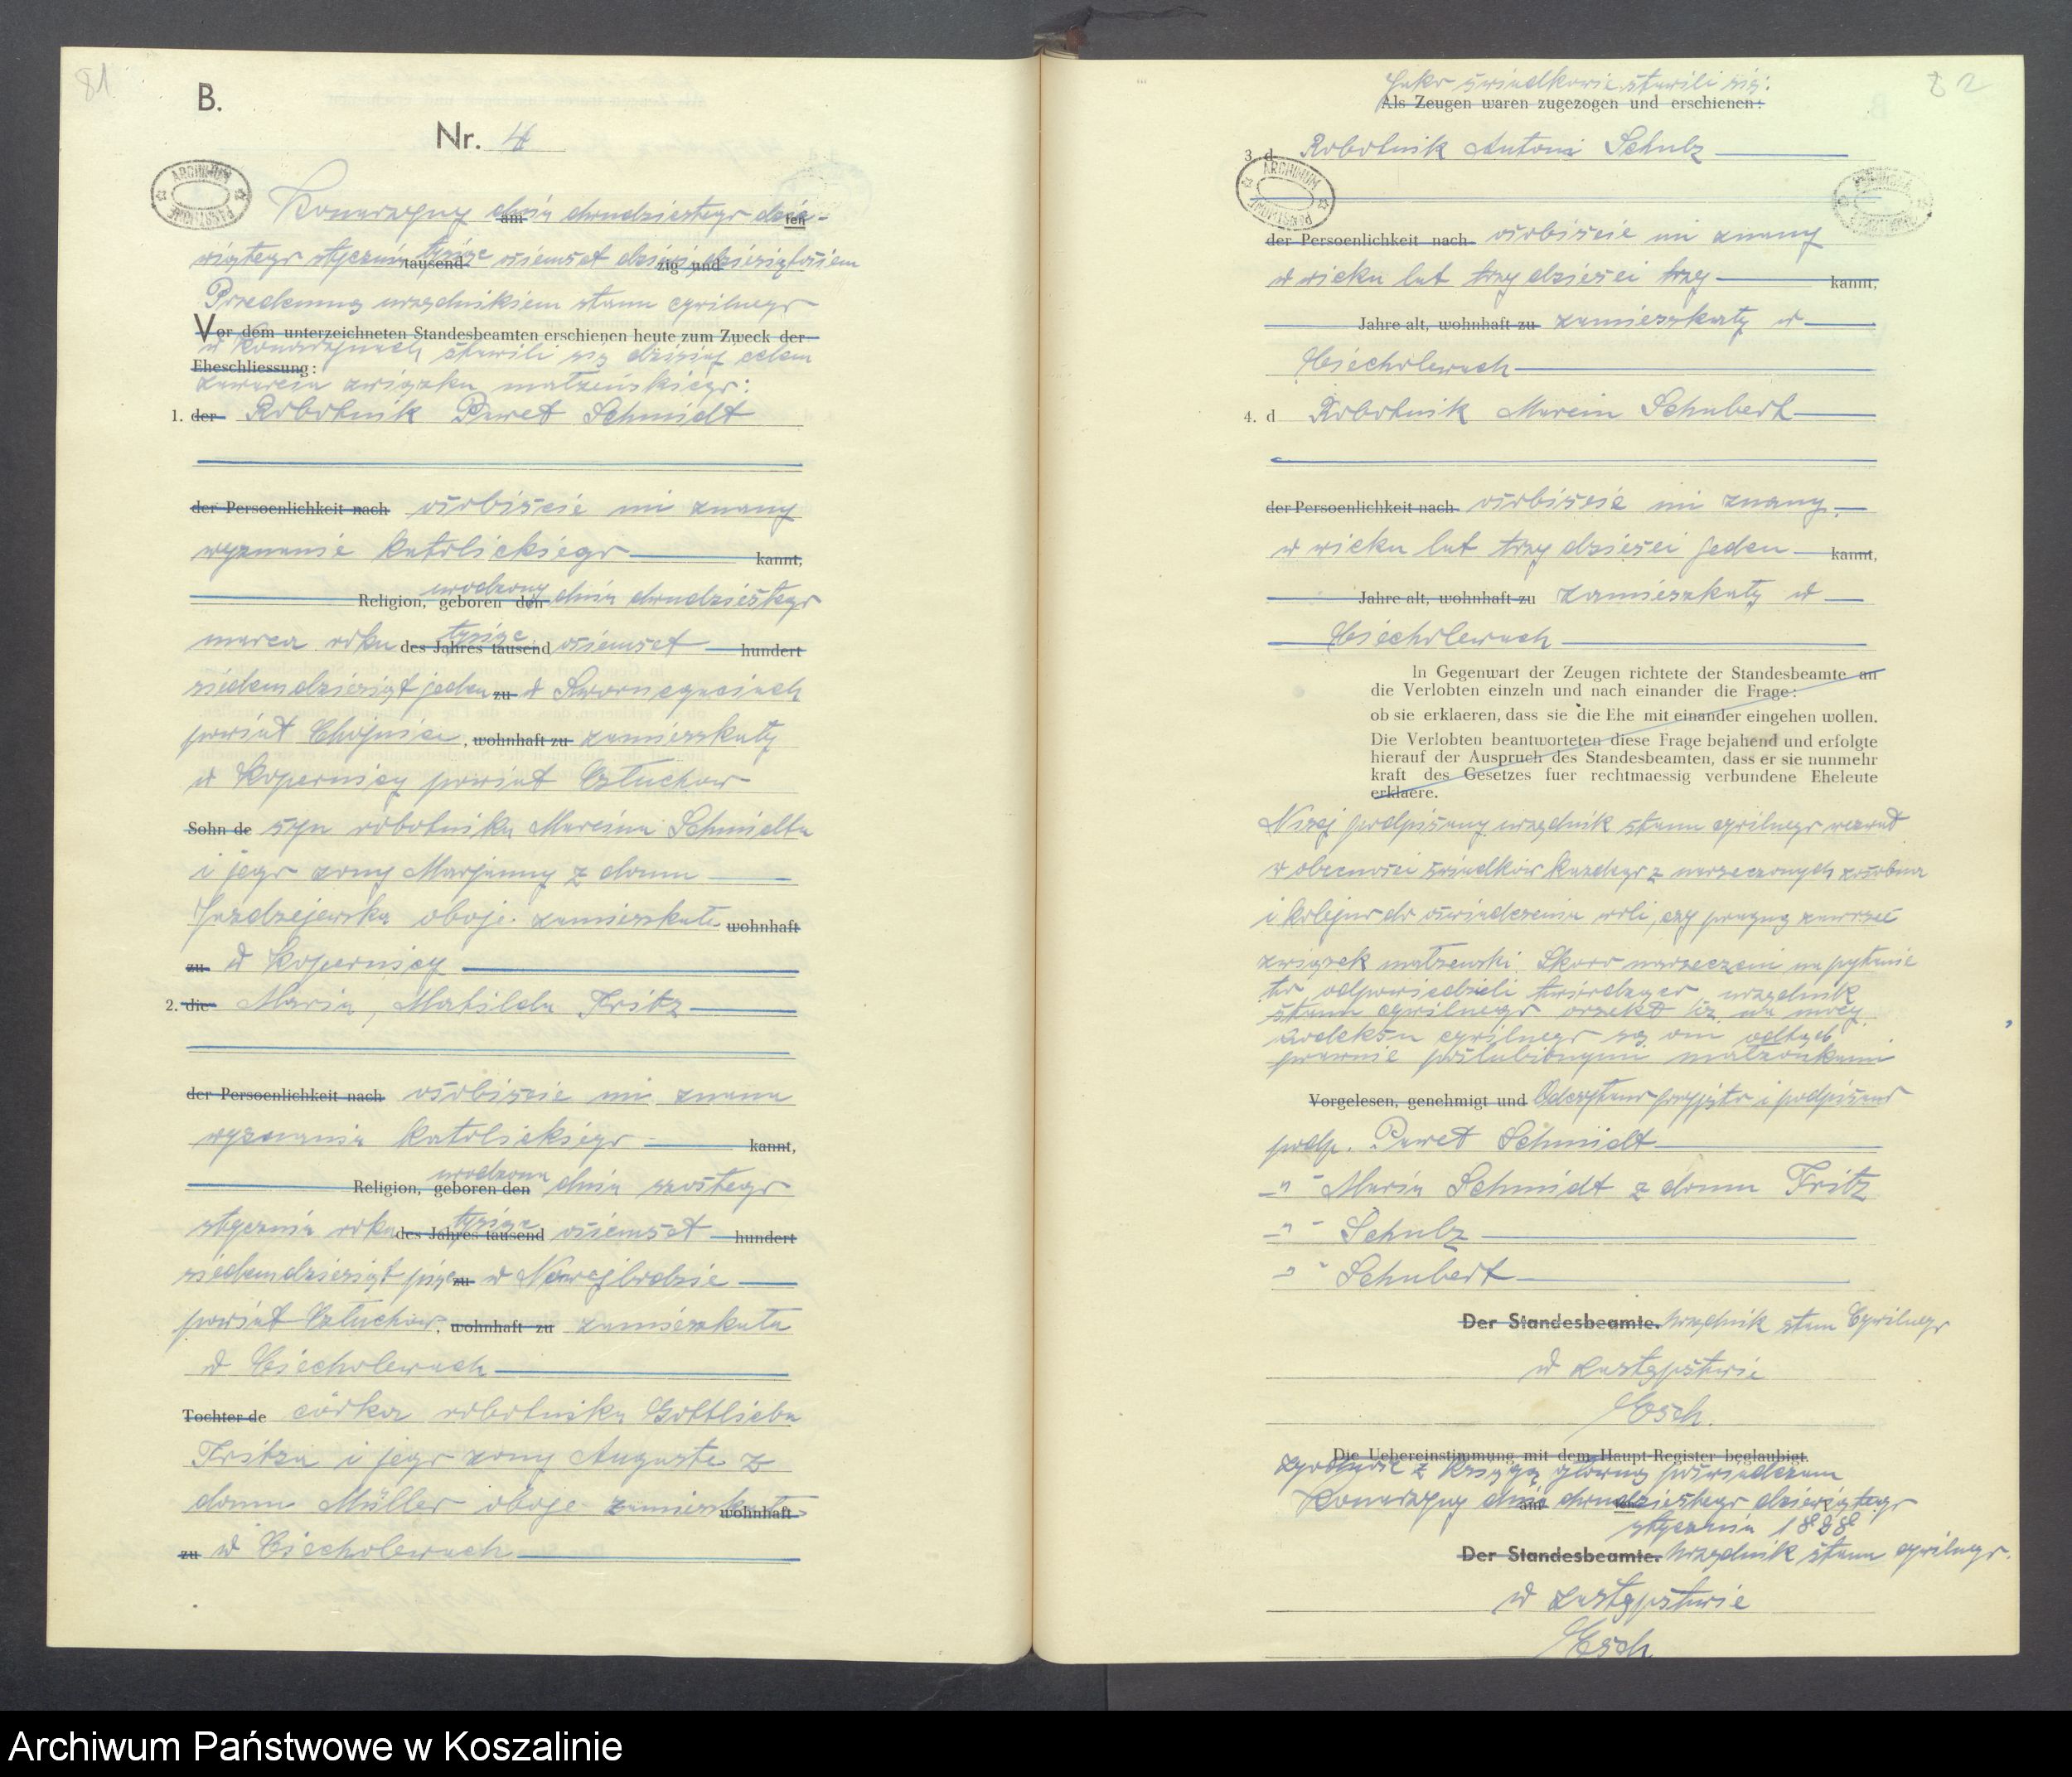 81
B.
Nr. 4
ARCHIWUM PAŃSTWOWE
Konarzyny am dnia dwudziestego dzie- ten
wiątego stycznia tausend tysiąc osiemset dziewi zig und dziesiąt osiem
Przedemną urzędnikiem stanu cywilnego
Vor dem unterzeichneten Standesbeamten erschienen heute zum Zweck der
w Konarzynach stawili się dzisiaj celem
Eheschliessung:
zawarcia związku małżeńskiego:
1. der Robotnik Paweł Schmidt
der Persoenlichkeit nach osobiście mi znany
wyznanie katolickiego kannt,
urodzony
Religion, geboren den dnia dwudziestego
marca roku des Jahres tausend tysiąc osiemset hundert
siedemdziesiąt jeden zu w Swornegaciach
powiat Chojnice, wohnhaft zu zamieszkały
w Kopernicy powiat Człuchow
Sohn de syn robotnika Marcina Schmidta
i jego zony Marjanny z domu
Jazdzejewska oboje zamieszkate wohnhaft
zu w Kopernicy
2. die Maria, Matilda Fritz
der Persoenlichkeit nach osobiście mi znana
wyznania katolickiego kannt,
urodzona
Religion, geboren den dnia szostego
stycznia roku des Jahres tausend tysiąc osiemset hundert
siedemdziesiąt pięc zu w Nowejbrdzie
powiat Człuchow, wohnhaft zu zamieszkata
w Ciecholewach
Tochter de córka robotnika Gottlieba
Fritza i jego zony Auguste z
domu Müller oboje zamieszkate wohnhaft
zu w Ciecholewach
82
Jako świadkowie stawili się:
Als Zeugen waren zugezogen und erschienen:
3. d Robotnik Antoni Schulz
ARCHIWUM PAŃSTWOWE
der Persoenlichkeit nach osobiście mi znany
w wieku lat trzydzieści trzy kannt,
Jahre alt, wohnhaft zu zamieszkaty w
Ciecholewach
4. d Robotnik Marcin Schubert
der Persoenlichkeit nach osobiście mi znany
w wieku lat trzydzieści jeden kannt,
Jahre alt, wohnhaft zu zamieszkaty w
Ciecholewach
In Gegenwart der Zeugen richtete der Standesbeamte an
die Verlobten einzeln und nach einander die Frage:
ob sie erklaeren, dass sie die Ehe mit einander eingehen wollen.
Die Verlobten beantworteten diese Frage bejahend und erfolgte
hierauf der Auspruch des Standesbeamten, dass er sie nunmehr
kraft des Gesetzes fuer rechtmaessig verbundene Eheleute
erklaere.
Nizej podpisany urzędnik stanu cywilnego wezwał
w obecności świadków kazdego z narzeczonych zosobna
i kolejno do oświadczenia woli, czy pragną zawrzeć
związek małżeński. Skoro narzeczeni na pytanie
to odpowiedzieli twierdząco urzędnik
stanu cywilnego orzekł iż na mocy
kodeksu cywilnego są oni odtąd
prawnie poślubionymi małżonkami
Vorgelesen, genehmigt und Odczytano przyjęto i podpisano
podp. Paweł Schmidt
-"- Maria Schmidt z domu Fritz
-"- Schulz
-"- Schubert
Der Standesbeamte. Urzędnik stanu Cywilnego
w zastępstwie
Esch.
Die Uebereinstimmung mit dem Haupt-Register beglaubigt.
Zgodność z księgą główną poświadczam
Konarzyny am dnia dwudziestego ten dziewiątego
stycznia 1898
Der Standesbeamte. Urzędnik stanu cywilnego.
w zastępstwie
Esch
Archiwum Państwowe w Koszalinie